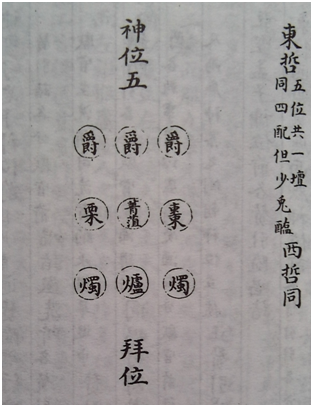 東哲
五位共一壇
同四配但少兔醢
西哲同
神位五
爵 爵 爵
栗 菁菹 棗
燭 爐 燭
拜位